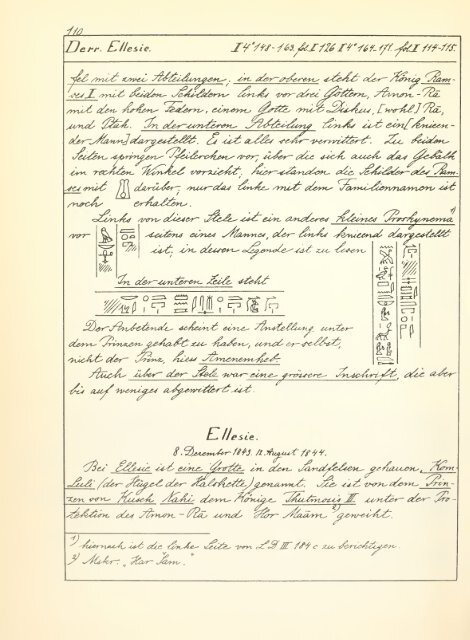 110
Derr. Ellesie. I 4° 148-163 fol. I 126 II 4° 164. 171. fol. II 114-115.
fel mit zwei Abteilungen; in der oberen steht der König Ram-
ses I mit beiden Schildern links vor drei Göttern, Amon-Rā
mit den hohen Federn, einem Gotte mit Diskus, [wohl] Rā,
und Ptah. In der unteren Abteilung links ist ein [knieen-
der Mann] dargestellt. Es ist alles sehr verwittert. Zu beiden
Seiten springen Pfeilerchen vor, über die sich auch das Gebälk
im rechten Winkel vorzieht; hier standen die Schilder des Ram-
ses mit darüber, nur das linke mit dem Familiennamen ist
noch erhalten.
Links von dieser Stele ist ein anderes kleines Proskynema 1)
vor seitens eines Mannes, der links knieend dargestellt
ist, in dessen Legende ist zu lesen
In der unteren Zeile steht
Der Anbetende scheint eine Anstellung unter
dem Prinzen gehabt zu haben, und er selbst,
nicht der Prinz, hiess Amenemheb.
Auch über der Stele war eine grössere Inschrift, die aber
bis auf weniges abgewittert ist.
Ellesie.
8. Dezember 1843. 12. August 1844.
Bei Ellesie ist eine Grotte in den Sandfelsen gehauen, Kom
Luli (der Hügel der Halskette) genannt. Sie ist von dem Prin-
zen von Kusch Nahi dem Könige Thutmosis III unter der Pro-
tektion des Amon-Rā und Hor Maām 2) geweiht.
1) hiernach ist die linke Seite von L D III 184 c zu berichtigen.
2) Mskr. "Har Sam."